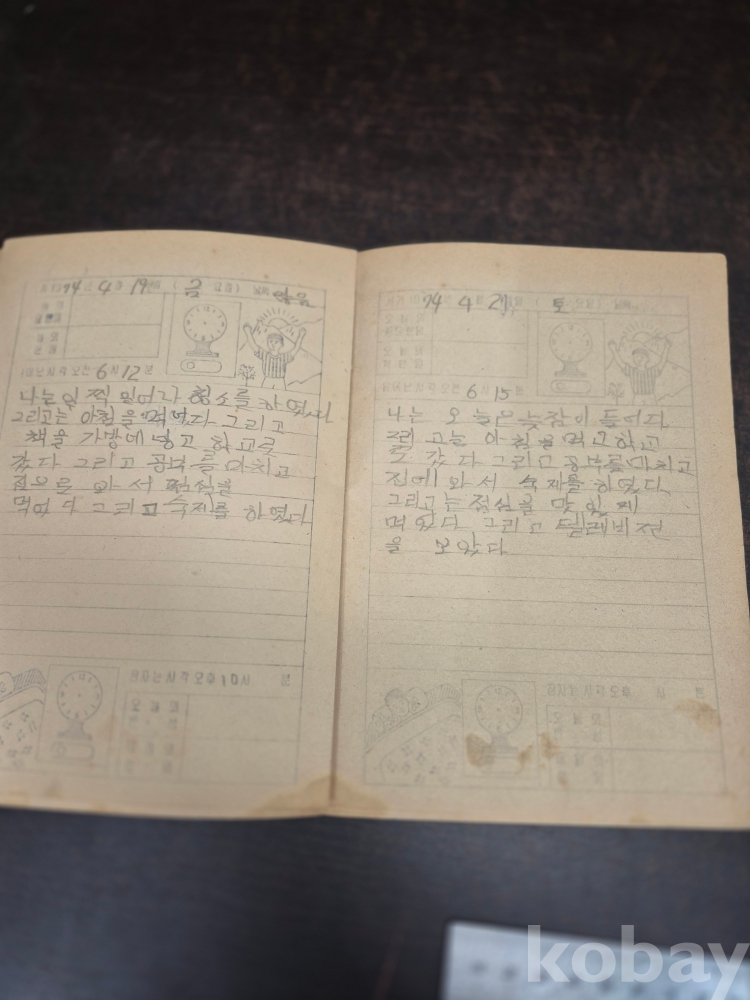 74 4 19 ( 금 요일)
6시 12분
나는 일 찍 일어나 청소를 하였다
그리고는 아침을 먹었다 그리고
책을 가방에 넣고 학교로
갔다 그리고 공부를 마치고
집으로 와 서 점심을
먹었다 그리고 숙제를 하였다
10시 분
74 4 ( 토 요일)
6시 15
나는 오 늘은 늦잠이 들어다
그리 고는 아 침을 먹고 학교
로 갔 다 그리고 공부를 마치고
집에 와 서 숙제를 하였다
그리고는 점심을 맛 있 게
먹 었다 그리 고 텔레비 전
을 보았다
kobay